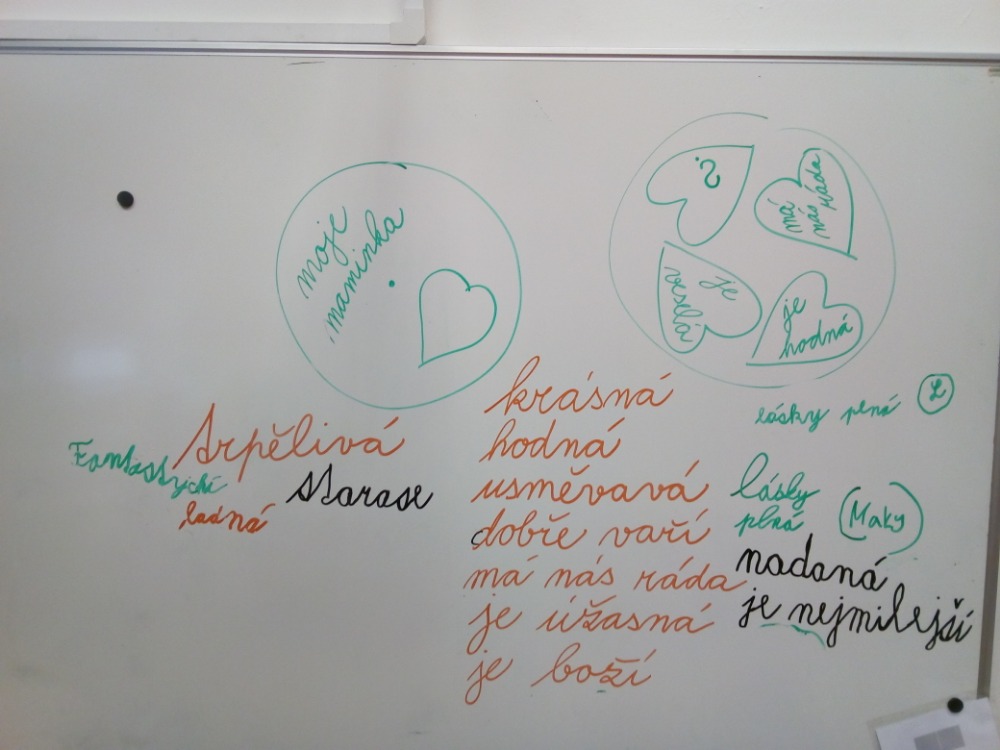 moje
maminka
?
má
nás
ráda
je
veselá
je
hodná
trpělivá
Fantastychí
ladná
starase
krásná
hodná
usměvavá
dobře vaří
má nás ráda
je úžasná
je boží
lásky plná
L
lásky
plná
(Maky)
nadaná
je nejmilejší